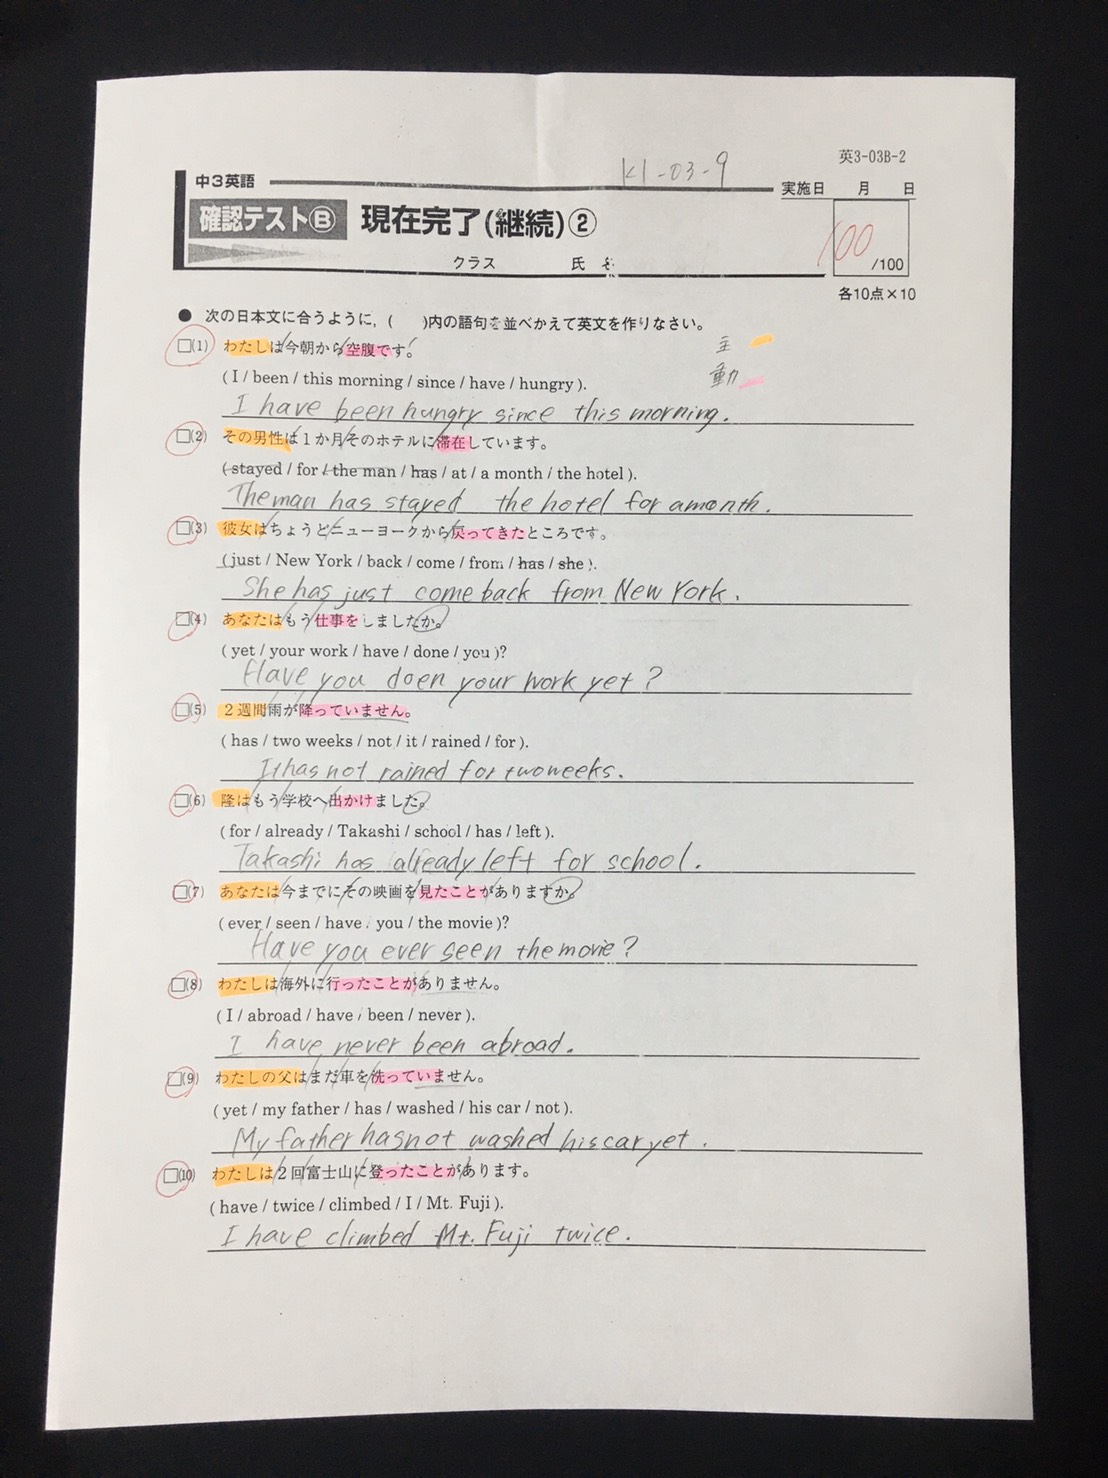 英3-03B-2
K1-03-9
中3英語
実施日 月 日
確認テストⒷ 現在完了(継続)②
100
/100
クラス 氏
各10点×10
● 次の日本文に合うように，( )内の語句を並べかえて英文を作りなさい。
主
動
□(1) わたしは今朝から空腹です。
( I / been / this morning / since / have / hungry ).
I have been hungry since this morning.
□(2) その男性は1か月そのホテルに滞在しています。
( stayed / for / the man / has / at / a month / the hotel ).
The man has stayed the hotel for a month.
□(3) 彼女はちょうどニューヨークから戻ってきたところです。
( just / New York / back / come / from / has / she ).
She has just come back from New York.
□(4) あなたはもう仕事をしましたか。
( yet / your work / have / done / you )?
Have you doen your work yet?
□(5) 2週間雨が降っていません。
( has / two weeks / not / it / rained / for ).
It has not rained for two weeks.
□(6) 隆はもう学校へ出かけました。
( for / already / Takashi / school / has / left ).
Takashi has already left for school.
□(7) あなたは今までにその映画を見たことがありますか。
( ever / seen / have / you / the movie )?
Have you ever seen the movie?
□(8) わたしは海外に行ったことがありません。
( I / abroad / have / been / never ).
I have never been abroad.
□(9) わたしの父はまだ車を洗っていません。
( yet / my father / has / washed / his car / not ).
My father has not washed his car yet.
□(10) わたしは2回富士山に登ったことがあります。
( have / twice / climbed / I / Mt. Fuji ).
I have climbed Mt. Fuji twice.